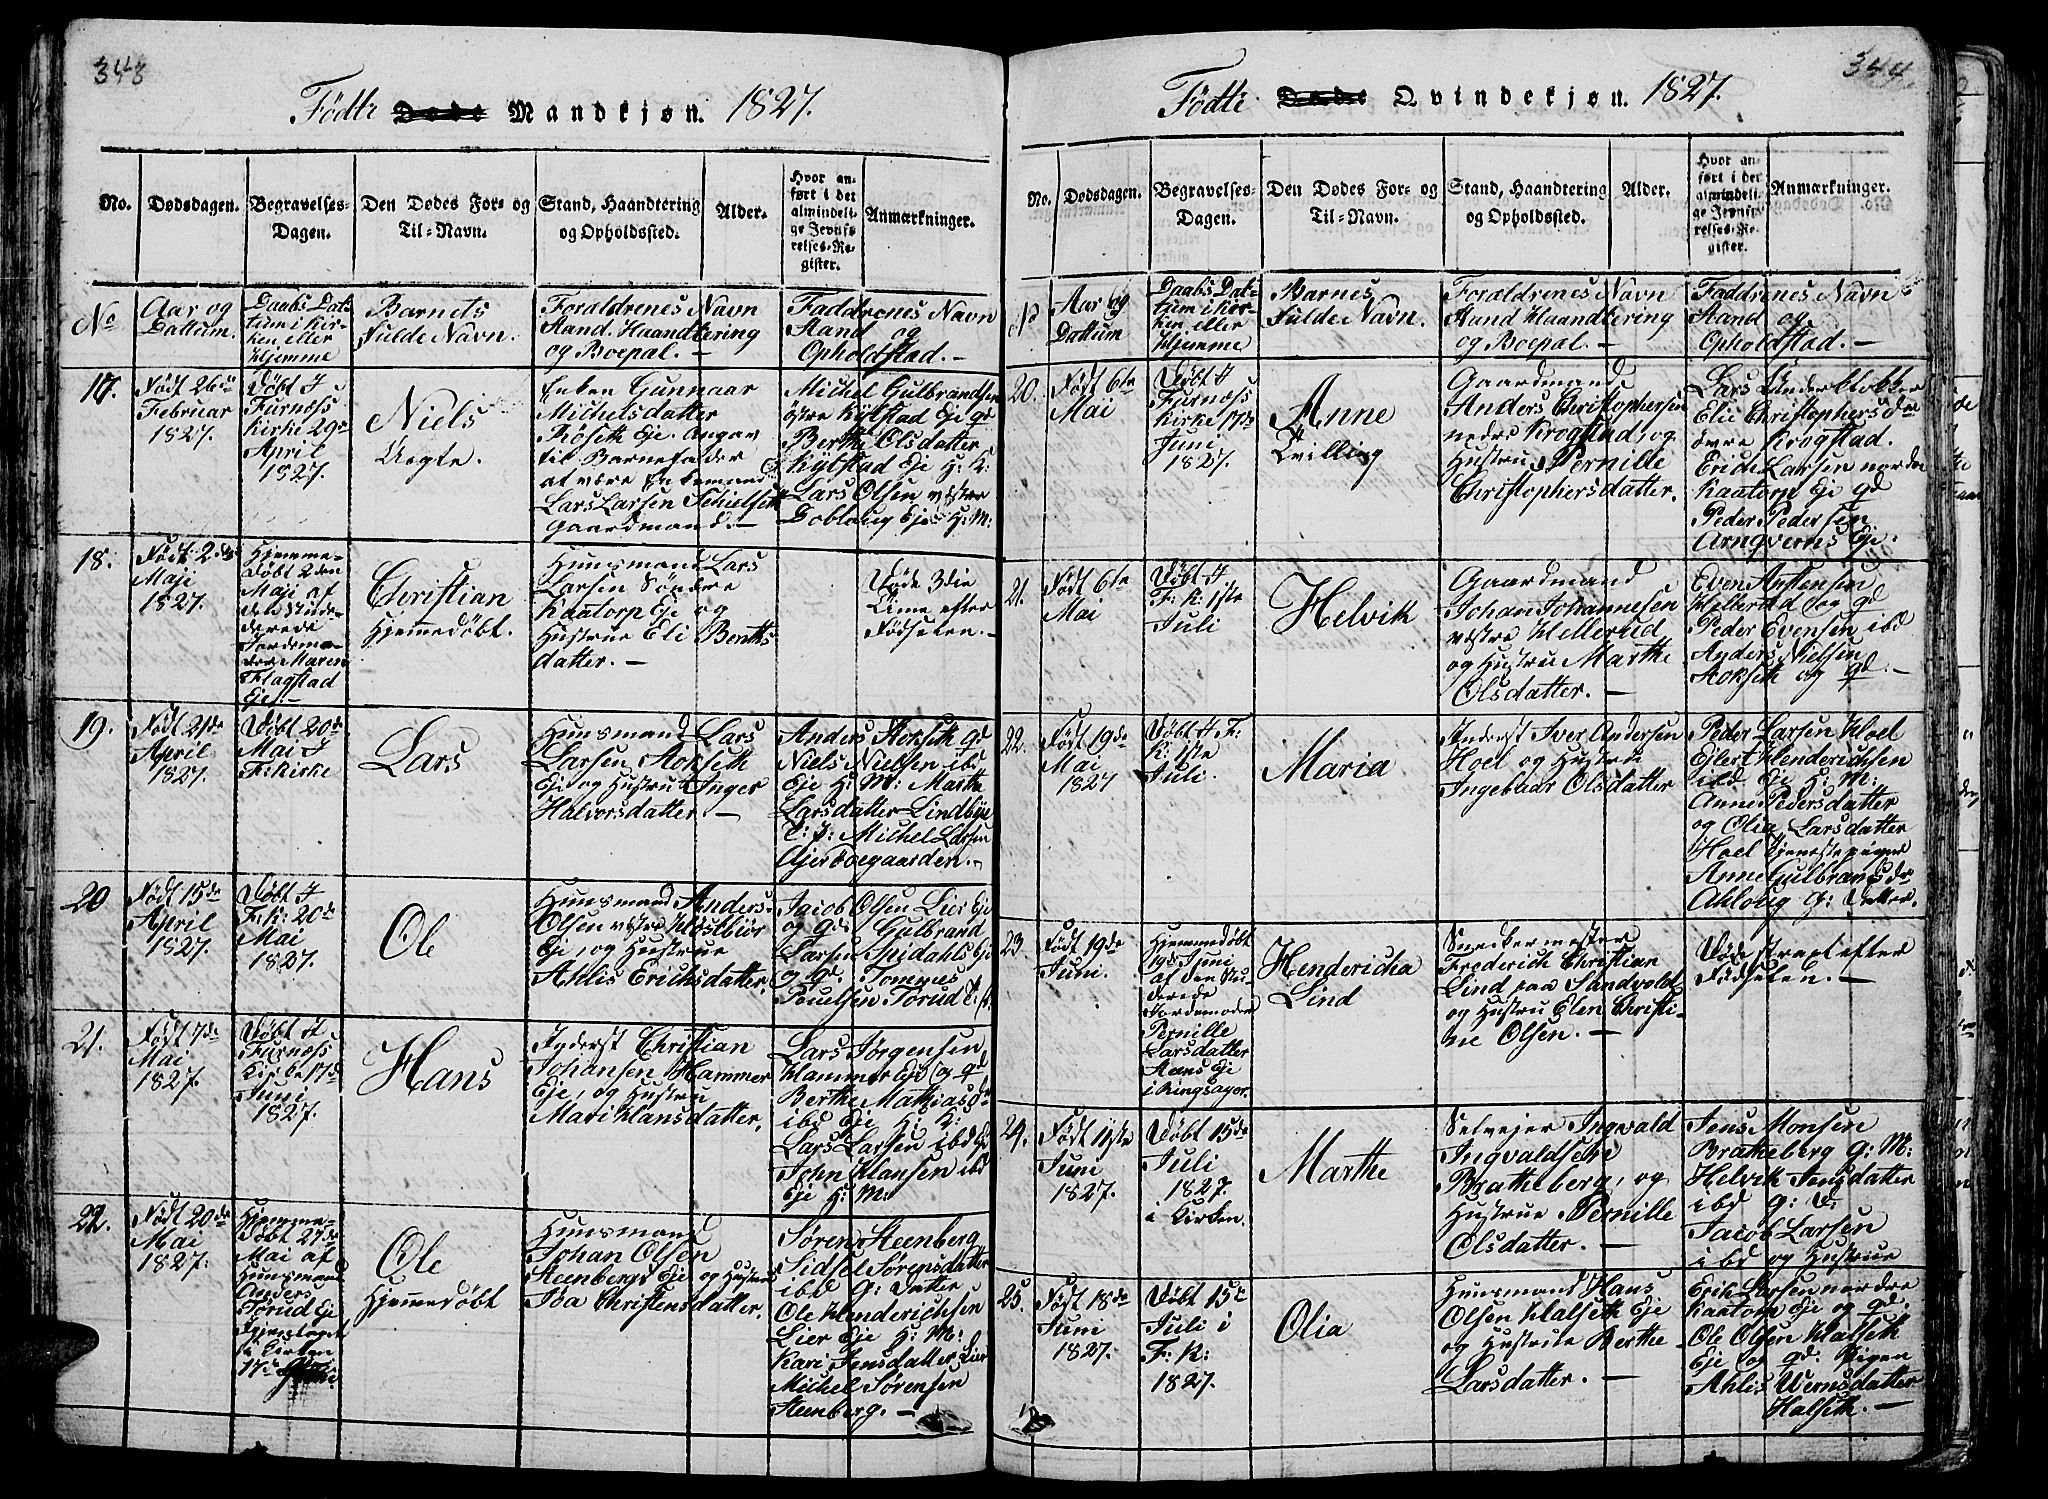 343
Fødte Døde Mandkjøn. 1827.
No.
Dødsdagen.
Begravelses-
Dagen.
Den Dødes For- og
Til-Navn.
Stand, Haandtering
og Opholdssted.
Alder.
Hvor an-
ført i det
almindeli-
ge Jevnfø-
relses-Re-
gister.
Anmærkninger.
No
Aar og
Dattum.
Daabs Dat-
tum i Kir-
ken eller
Hjemme
Barnets
fulde Navn.
Forældrenes Navn
Stand Haandtering
og Boepæl. —
Faddrenes Navn
Stand og
Opholdstad. —
17.
Født 26de
Februar
1827.
Døbt I
Furnæss
Kirke 29de
April
1827.
Niels
Uægte.
Enken Gunnaar
Michelsdatter
Røseth Eje. Angav
til Barnefader
at være Enkemand
Lars Larsen Schielseth
Gaardmand. —
Michel Gulbrandsen
østre Kylstad Eje gd
Berthe Olsdatter
Kylstad Eje H: K:
Lars Olsen væstre
Doblaug Eje H: M:
18.
Født 2den
Maji
1827.
Hjemme-
døbt 2den
Maji af
den Stude-
derede
Jordemo-
der Maren
Flagstad
Eje. —
Christian
Hjemmedøbt.
Huusmand Lars
Larsen Søndere
Kaatorp Eje og
Hustrue Eli Bernts-
datter. —
Døde 3die
Time efter
Fødselen. —
19.
Født 21de
April
1827.
Døbt 20de
Mai I
F: Kirke
Lars
Huusmand Lars
Larsen Stokseth
Eje og Hustru Inger
Halvorsdatter. —
Anders Stokseth gd
Niels Nielsen ibd
Eje H: M: Marthe
Larsdatter Lindbye
T: J: Michel Larsen
Gjersoegaarden. —
20
Født 15de
April
1827.
Døbt I
F: K: 20de
Mai
1827.
Ole
Huusmand Anders
Olsen væstre Kløstbiør
Eje, og Hustrue
Ahlis Erichsdatter.
Jacob Olsen Lier Eje
og gd: Gulbrand
Larsen Spidahls Eje
og gd Tommes
Poulsen Torud
21.
Født 7de
Mai
1827.
Døbt I
Furnæss
Kirke 17de
Juni
1827.
Hans
Inderst Christian
Johansen Hammer
Eje, og Hustru
Mari Hansdatter.
Lars Jørgensen
Hammer Eje og gd
Berthe Mathiasdr
ibd Eje H: K:
Lars Larsen ibd Eje
John Hansen ibd
Eje H: M:
22.
Født 20de
Mai
1827.
Hjemme-
døbt 27de
Mai af
Huusmand
Anders
Torud Eje
Igjentaget
i Kirken
17de
Ole
Hjemmedøbt
Huusmand
Johan Olsen
Steenbergs Eje og Hustrue
Toa Christensdatter.
Søren Steenberg
Sidsel Sørensdatter
ibd G: Datter
Ole Henderichsen
Lier Eje H: M:
Kari Jensdatter Lier
Michel Sørensen
Steenberg. —
344
Fødte Døde Qvindekjøn. 1827.
No.
Dødsdagen.
Begravelses-
Dagen.
Den Dødes For- og
Til-Navn.
Stand, Haandtering
og Opholdssted.
Alder.
Hvor an-
ført i det
almindeli-
ge Jevnfø-
relses-Re-
gister.
Anmærkninger.
No
Aar og
Dattum
Daabs Dat-
tum i Kir-
ken eller
Hjemme
Barnes
fulde Navn.
Forældrenes Navn
Stand Haandtering
og Boepal. —
Faddrenes Navn
Stand og
Opholdstad. —
20.
Født 6te
Mai
Døbt I
Furnæss
Kirke 17de
Juni
1827.
Anne
Tvilling
Gaardmand
Anders Christophersen
nedre Krogstad, og
Hustru Pernille
Christophersdatter.
Lars Underklokker
Elie Christophersdr
øvre Krogstad.
Erich Larsen nordre
Kaatorp Eje gd
Peder Pedersen
Arnqverns Eje.
21.
Født 6te
Mai
Døbt I
F: K: 1ste
Juli
Helvik
Gaardmand
Johan Johannesen
væstre Hellerud
og Hustru Marthe
Olsdatter. —
Even Austensen
Hellerud og gd
Peder Evensen ibd
Anders Nielsen
Stokseth og gd. —
22.
Født 19de
Mai
1827
Døbt I F:
K: 1ste
Juli.
Maria
Inderst Iver Andersen
Hoel og Hustrue
Ingebaar Olsdatter
Peder Larsen Hoel
Ejlert Henderichsen
ibd Eje H: M:
Anne Pedersdatter
og Olia Larsdatter
Hoel Tjenestepigen
Anne Gulbransdr
Ahloug G: Datter.
23.
Født 19de
Juni.
Hjemmedøbt
19de Juni
af den Stu-
derede
Jordemoder
Pernille
Larsdatter
Stens Eje
i Ringsager.
Hendericha
Lind
Sneckermester
Frederich Christian
Lind paa Sandvold
og Hustru Elen Christi-
ne Olsen. —
Døde straxt efter
Fødselen. —
24.
Født 11ste
Juni
1827.
Døbt 15de
Juli
1827.
i Kirken.
Marthe
Selvejer Ingvald
Ingvaldsen
Bratheberg, og
Hustrue Pernille
Olsdatter. —
Jens Monsen
Bratheberg G: M:
Helvik Jensdatter
ibd G: D:
Jacob Larsen
ibd og Hustrue
25.
Født 18de
Juni
1827.
Døbt 15de
Juli i
F: K:
1827.
Olia
Huusmand Hans
Olsen Halseth Eje
og Hustrue Berthe
Larsdatter. —
Erik Larsen nordre
Kaatorp Eje og gd.
Ole Olsen Halseth
Eje og gd. Pigen
Ahlis Wernsdatter
Halseth. —